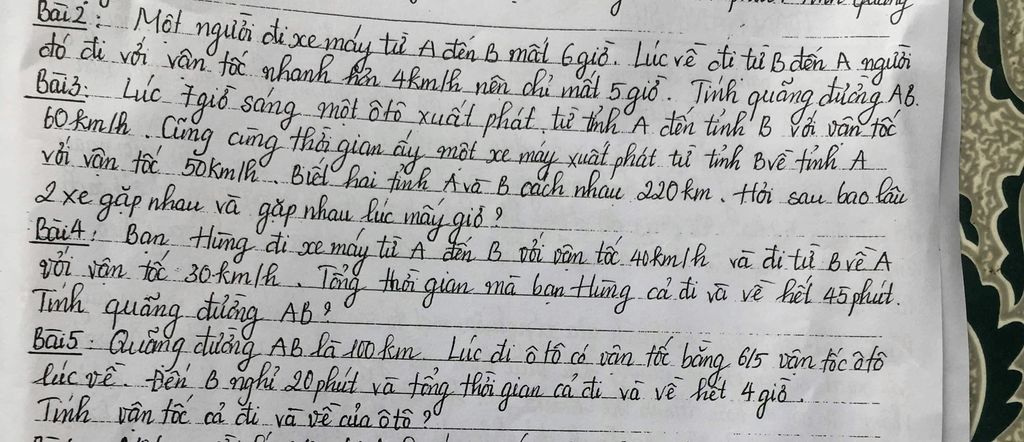 Bài 2: Một người đi xe máy từ A đến B mất 6 giờ. Lúc về đi từ B đến A người
đó đi với vận tốc nhanh hơn 4km/h nên chỉ mất 5 giờ. Tính quãng đường AB.
Bài 3: Lúc 7 giờ sáng một ôtô xuất phát từ tỉnh A đến tỉnh B với vận tốc
60km/h. Cũng cùng thời gian ấy một xe máy xuất phát từ tỉnh B về tỉnh A
với vận tốc 50km/h. Biết hai tỉnh A và B cách nhau 220km. Hỏi sau bao lâu
2 xe gặp nhau và gặp nhau lúc mấy giờ?
Bài 4: Bạn Hùng đi xe máy từ A đến B với vận tốc 40km/h và đi từ B về A
với vận tốc 30km/h. Tổng thời gian mà bạn Hùng cả đi và về hết 45 phút.
Tính quãng đường AB?
Bài 5: Quãng đường AB là 100km. Lúc đi ôtô có vận tốc bằng 6/5 vận tốc ôtô
lúc về. Đến B nghỉ 20 phút và tổng thời gian cả đi và về hết 4 giờ.
Tính vận tốc cả đi và về của ôtô?